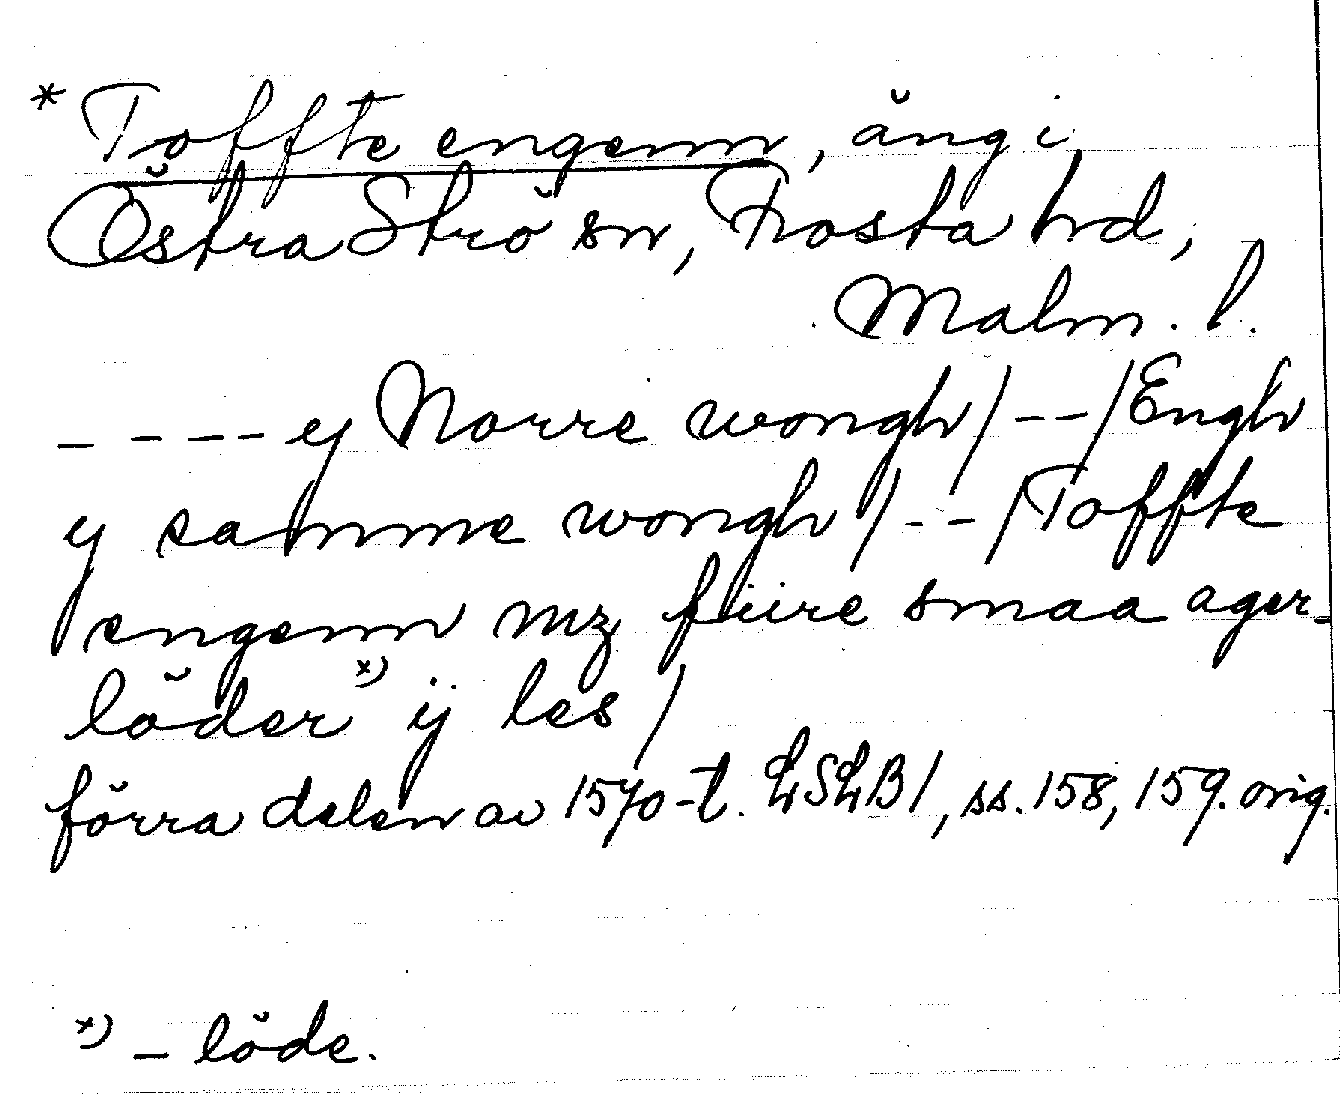 * Toffte engenn, äng i
Östra Strö sn, Frosta hd,
Malm. l.
_ - - - - y Norre wongh/ - - /Engh
y samme wongh /- - /Toffte
engenn mz fiire smaa ager-
löder *) ij les /
förra delen av 1570-t. LSLB1, ss. 158, 159. orig.
*) - löde.